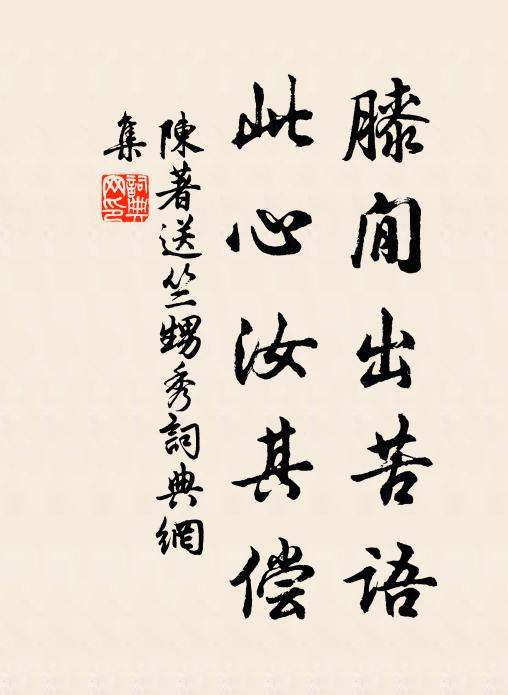 膝间出苦语
此心汝其偿
陳著送竺甥秀詞典網
集
詞典
网印